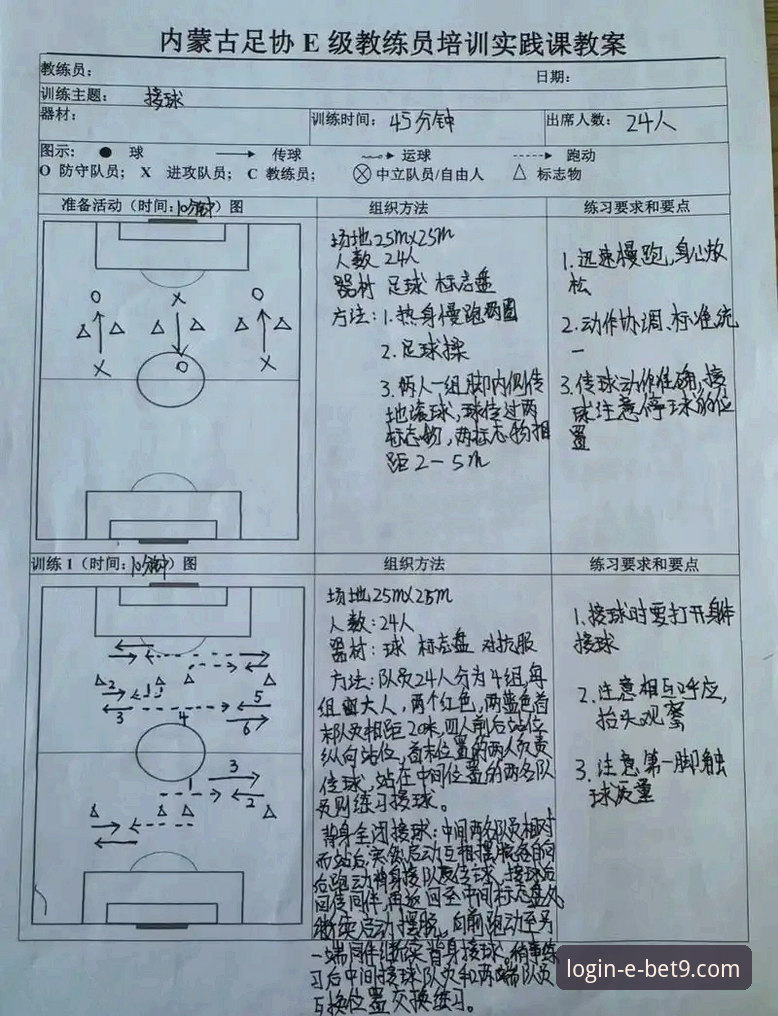 内蒙古足协 E 级教练员培训实践课教案
教练员： 日期：
训练主题： 接球
器材： 训练时间： 45分钟 出席人数： 24人
图示： ● 球 传球 运球 跑动
O 防守队员； X 进攻队员； C 教练员； 中立队员/自由人 △ 标志物
准备活动（时间：10分钟）图 组织方法 练习要求和要点
场地25m×25m
人数 24人
器材 足球 标志盘
方法：1.热身慢跑两圈
2.足球操
3.俩人一组,脚内侧传
地滚球,球传过两
标志物,两标志物相
距2－5m
1.迅速慢跑,身心放
松
2.动作协调、标准统
一
3.传球动作准确,接
球注意停球的位
置
O X O
X O X
训练 1（时间：10分钟）图 组织方法 练习要求和要点
场地25m×25m
人数：24人
器材：球 标志盘 对抗服
方法：队员24人分为4组,每
组六人，两个红色，两蓝色首
末队员相距20米,四人前后站位
纵向站位,首末位置的两人负责
传球,站在中间位置的两名队
员则练习接球。
背身全闭接球：中间两名队员相对
而站后,突然启动互相摆脱各自向
后跑动背身接队员传球,接球后
回传同伴,再返回至中间标志盘处
继续启动摆脱,向前跑动至另
一端同伴继续背身接球。稍事练
习后中间接球队员和两端队员
互换位置交换练习。
1.接球时要打开身体
接球
2.注意相互呼应,
抬头观察
3.注意第一脚触
球质量
2 1
3 4 5
6
3
1 2
login-e-bet9.com